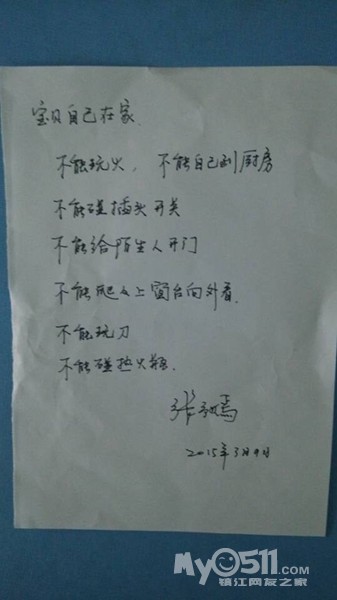 宝贝自己在家
不能玩火, 不能自己到厨房
不能碰插头开关
不能给陌生人开门
不能爬上窗台向外看.
不能玩刀
不能碰热水瓶.
张
2015年3月9日
My0511.com
镇江网友之家